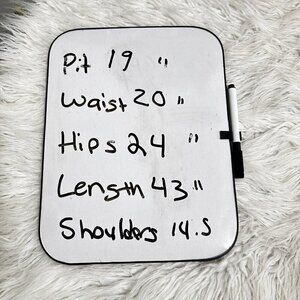 Pit 19 "
Waist 20 "
Hips 24 "
Length 43 "
Shoulders 14.5